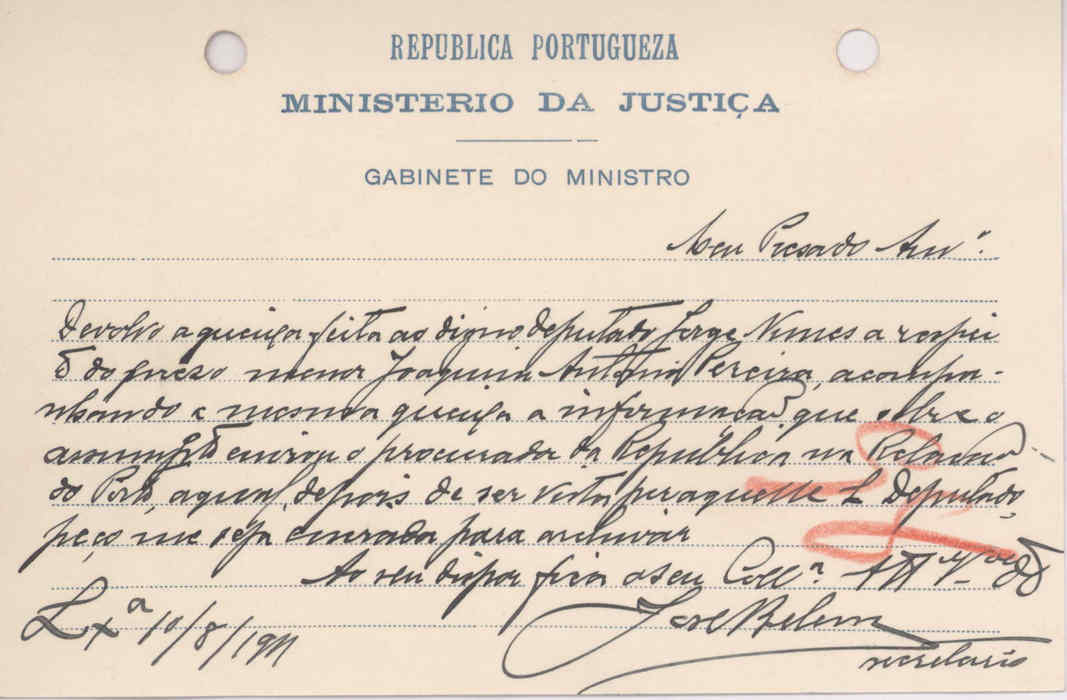 REPUBLICA PORTUGUEZA
MINISTERIO DA JUSTIÇA
GABINETE DO MINISTRO
Meu Presado Amº.
Devolvo a queixa feita ao digno deputado Jorge Nunes a respei
to do preso menor Joaquim Antonio Pereira, acompa-
nhando a mesma queixa a informação que sobre o
assumpto enviou o procurador da Republica na Relação
do Porto, a qual, depois de ser vista por aquelle Sr Deputado,
peço me seja enviada para archivar
Ao seu dispor fica o seu Collª.
Lxª 10/8/1911
José Belem
secretario